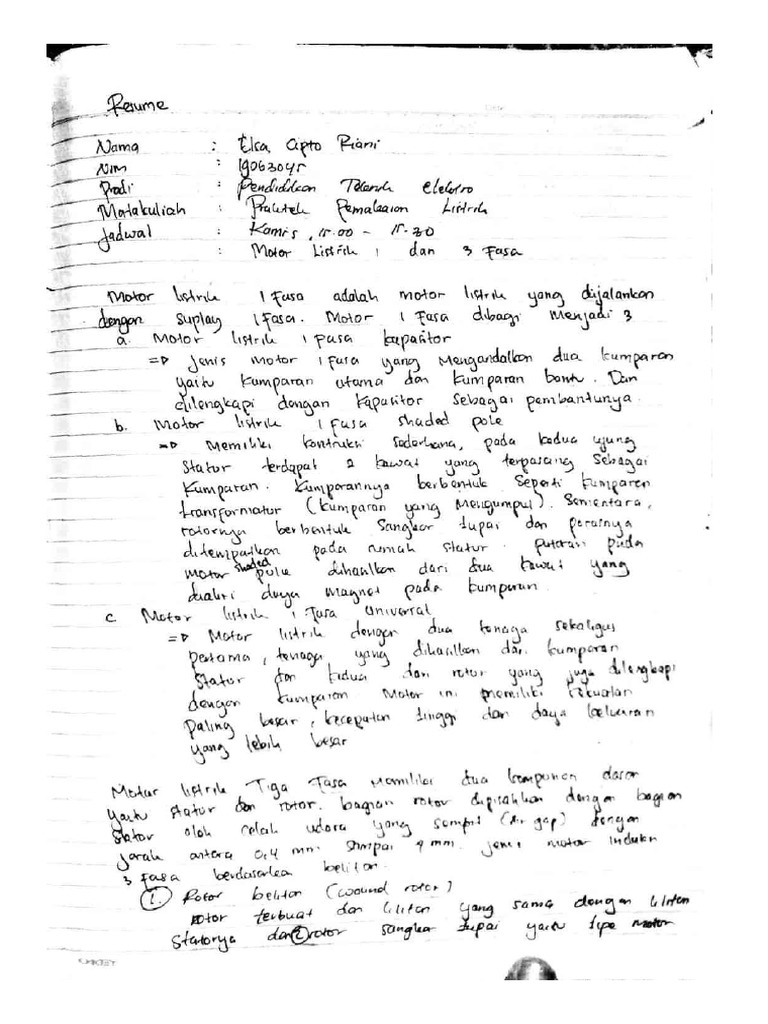 Resume
Nama : Elsa Cipto Riani
NIM : 19063045
Prodi : Pendidikan Teknik Elektro
Matakuliah : Praktek Pemakaian Listrik
Jadwal : Kamis, 15.00 - 15.30
: Motor Listrik 1 dan 3 Fasa
Motor listrik 1 Fasa adalah motor listrik yang dijalankan
dengan suplay 1 fasa. Motor 1 Fasa dibagi menjadi 3
a. Motor listrik 1 fasa kapasitor
=> Jenis motor 1 fasa yang mengandalkan dua kumparan
yaitu kumparan utama dan kumparan bantu. Dan
dilengkapi dengan kapasitor sebagai pembantunya.
b. Motor listrik 1 fasa shaded pole
=> Memiliki kontruksi sederhana, pada kedua ujung
stator terdapat 2 kawat yang terpasang sebagai
kumparan. Kumparannya berbentuk seperti kumparan
transformator (kumparan yang mengumpul). Sementara,
rotornya berbentuk sangkar tupai dan porosnya
ditempatkan pada rumah stator. putaran pada
motor shaded pole dihasilkan dari dua kawat yang
dialiri daya magnet pada kumparan.
c. Motor listrik 1 fasa universal
=> Motor listrik dengan dua tenaga sekaligus
pertama, tenaga yang dihasilkan dari kumparan
stator dan kedua dari rotor yang juga dilengkapi
dengan kumparan Motor ini memiliki kekuatan
paling besar, kecepatan tinggi dan daya keluaran
yang lebih besar
Motor listrik Tiga Fasa memiliki dua komponen dasar
yaitu stator dan rotor. bagian rotor dipisahkan dengan bagian
stator oleh celah udara yang sempit (air gap) dengan
jarak antara 0,4 mm sampai 4 mm. jenis motor induksi
3 fasa berdasarkan belitan.
1. Rotor belitan (wound rotor)
rotor terbuat dari lilitan yang sama dengan lilitan
statorya dan 2 rotor sangkar tupai yaitu tipe motor